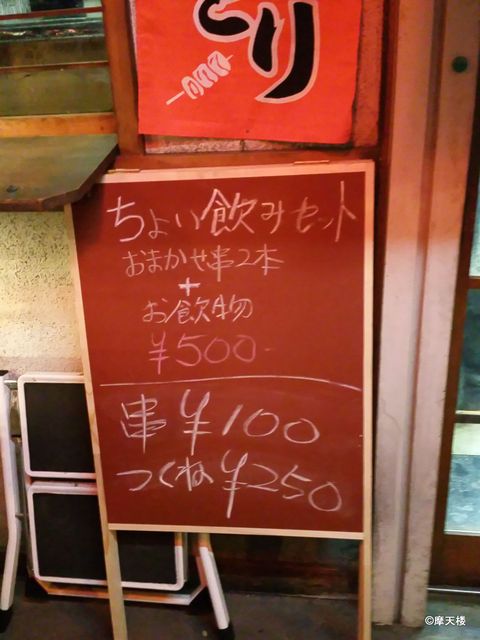 とり
ちょい飲みセット
おまかせ串2本
+
お飲物
¥500-
串¥100
つくね¥250
©摩天楼